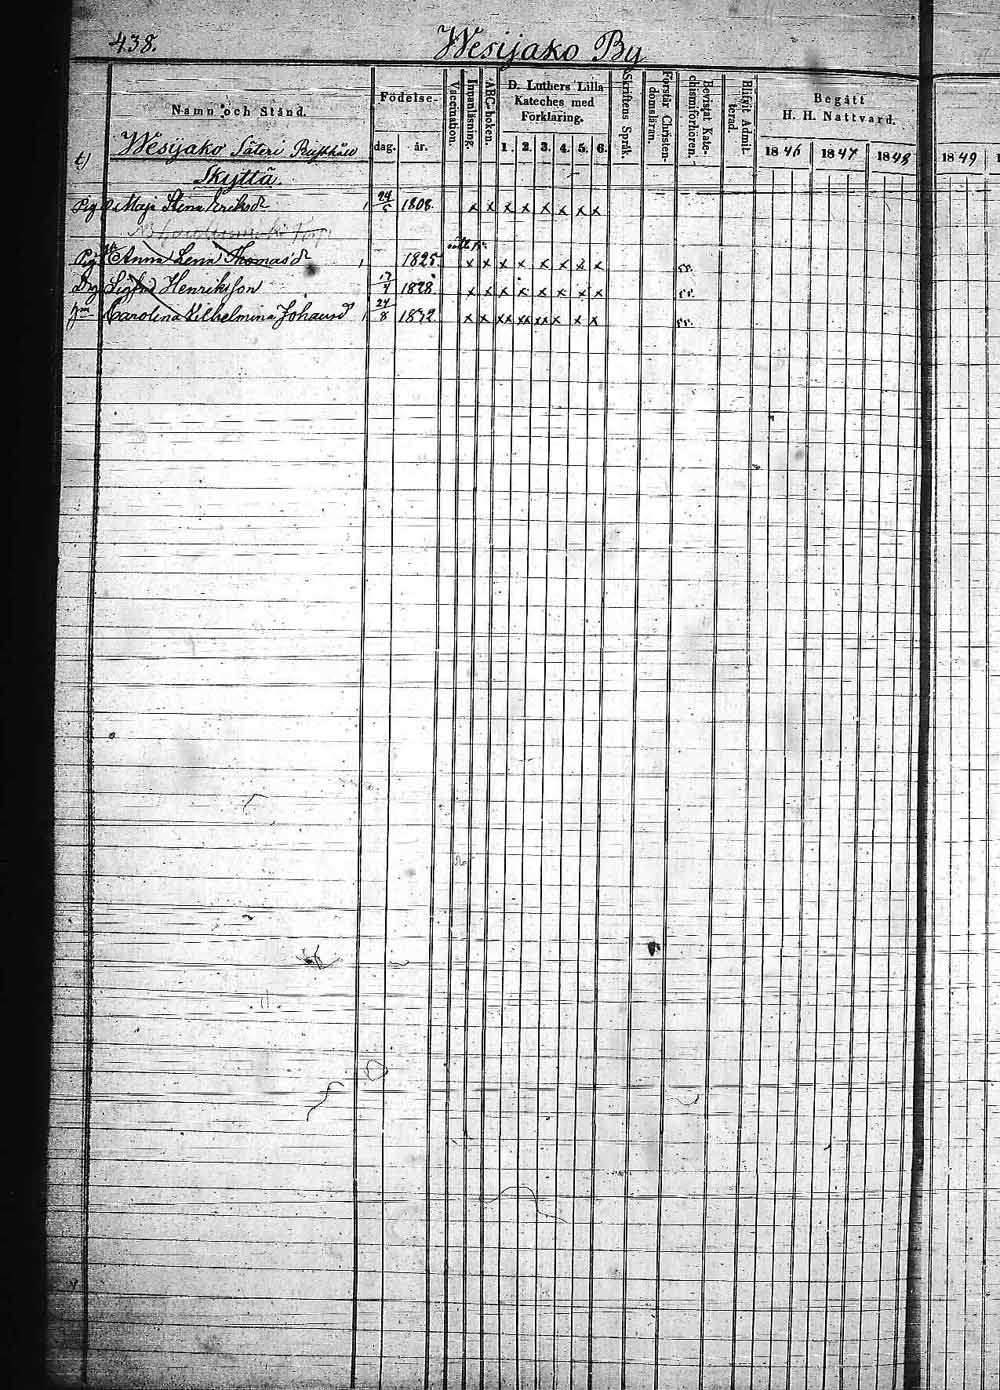 438.
Wesijako By
Namn och Stånd.
Födelse-
dag.
år.
Vaccination.
Innanläsning.
ABC-boken.
D. Luthers Lilla
Kateches med
Förklaring.
1. 2. 3. 4. 5. 6.
Skriftens Språk.
Förstår Christen-
domsläran.
Bevistat Kate-
chismiförhören.
Blifvit Admit-
terad.
Begått
H. H. Nattvard.
1846 1847 1848 1849
t) Wesijako Säteri
Skyttä.
Pig Maja Stena Eriksdr 24/5 1808. x x x x x x x x
Pig Anna Lena Thomasdr 1825 x x x x x x x x
Drg Henriksson 17/4 1828 x x x x x x x x
Carolina Vilhelmina Johansd 24/8 1832. x x xx xx xx x x x